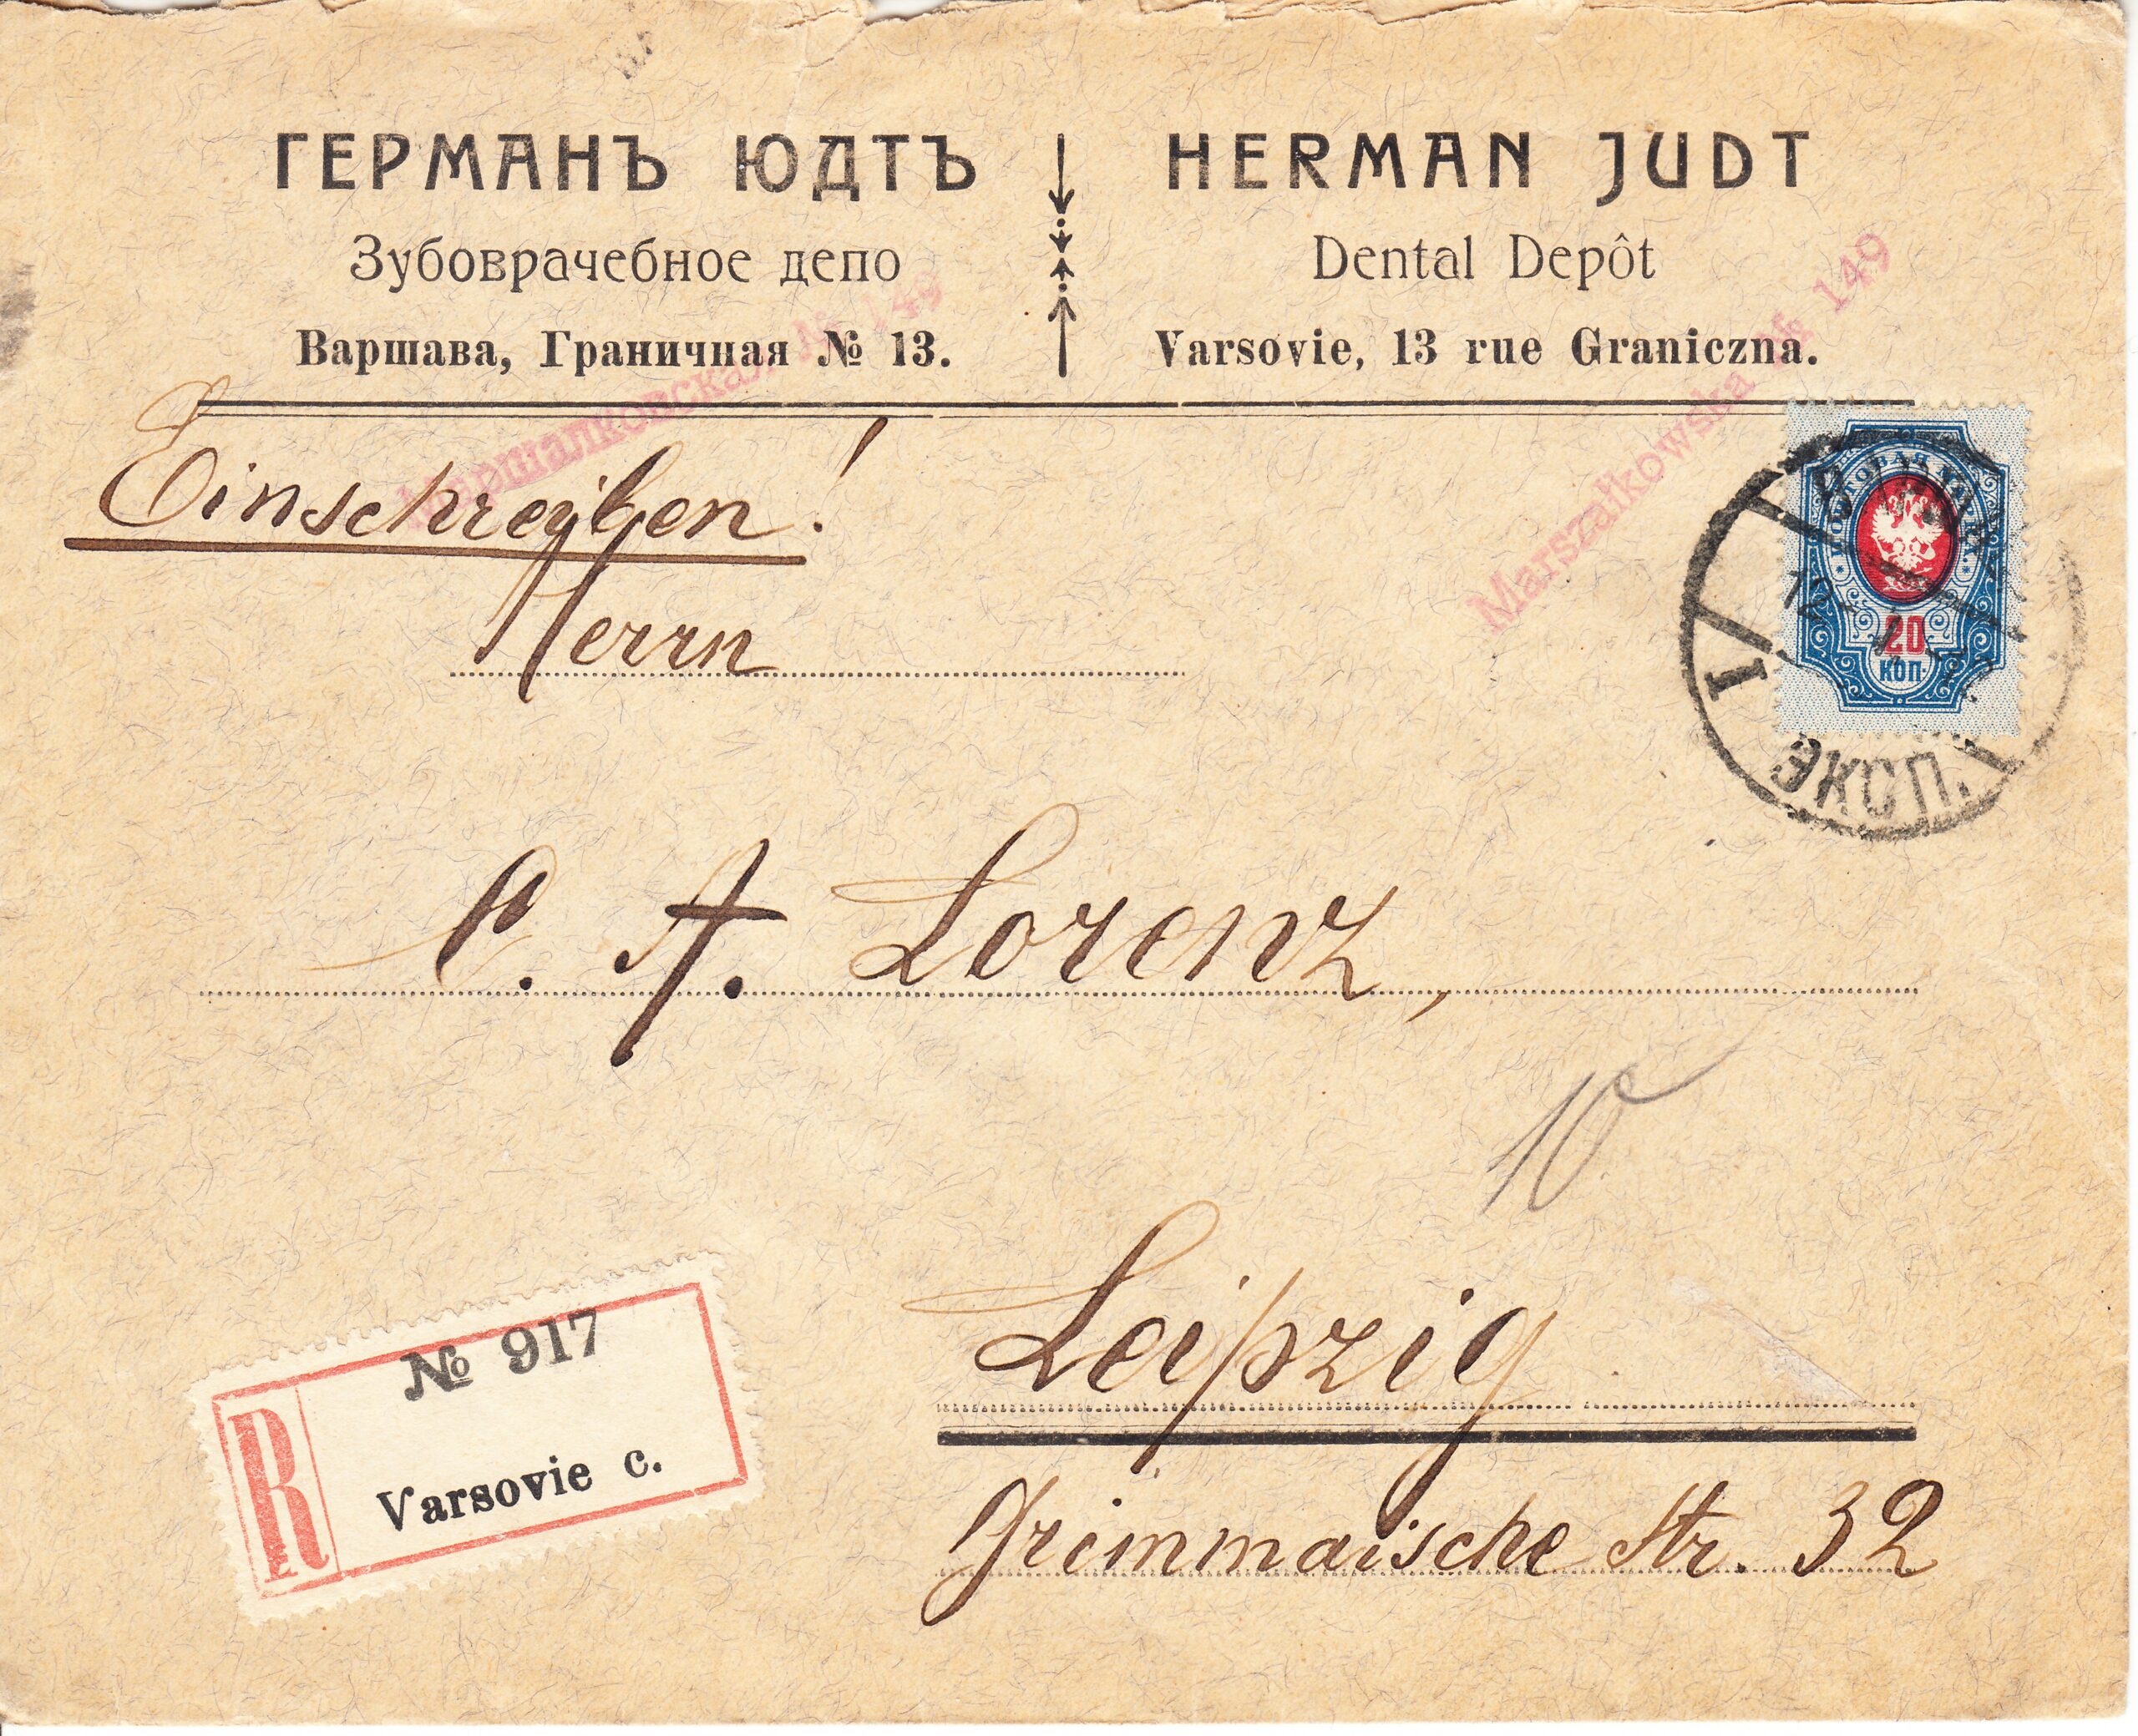 ГЕРМАНЪ ЮДТЪ
Зубоврачебное депо
Варшава, Граничная № 13.
HERMAN JUDT
Dental Depôt
Varsovie, 13 rue Graniczna.
Маршалковская № 149
Marszałkowska № 149
Einschreiben!
Herrn
ПОЧТОВАЯ МАРКА
20
КОП
1
ЭКСП.
C. A. Lorenz,
10
Leipzig
Grimmaische Str. 32
R
№ 917
Varsovie c.